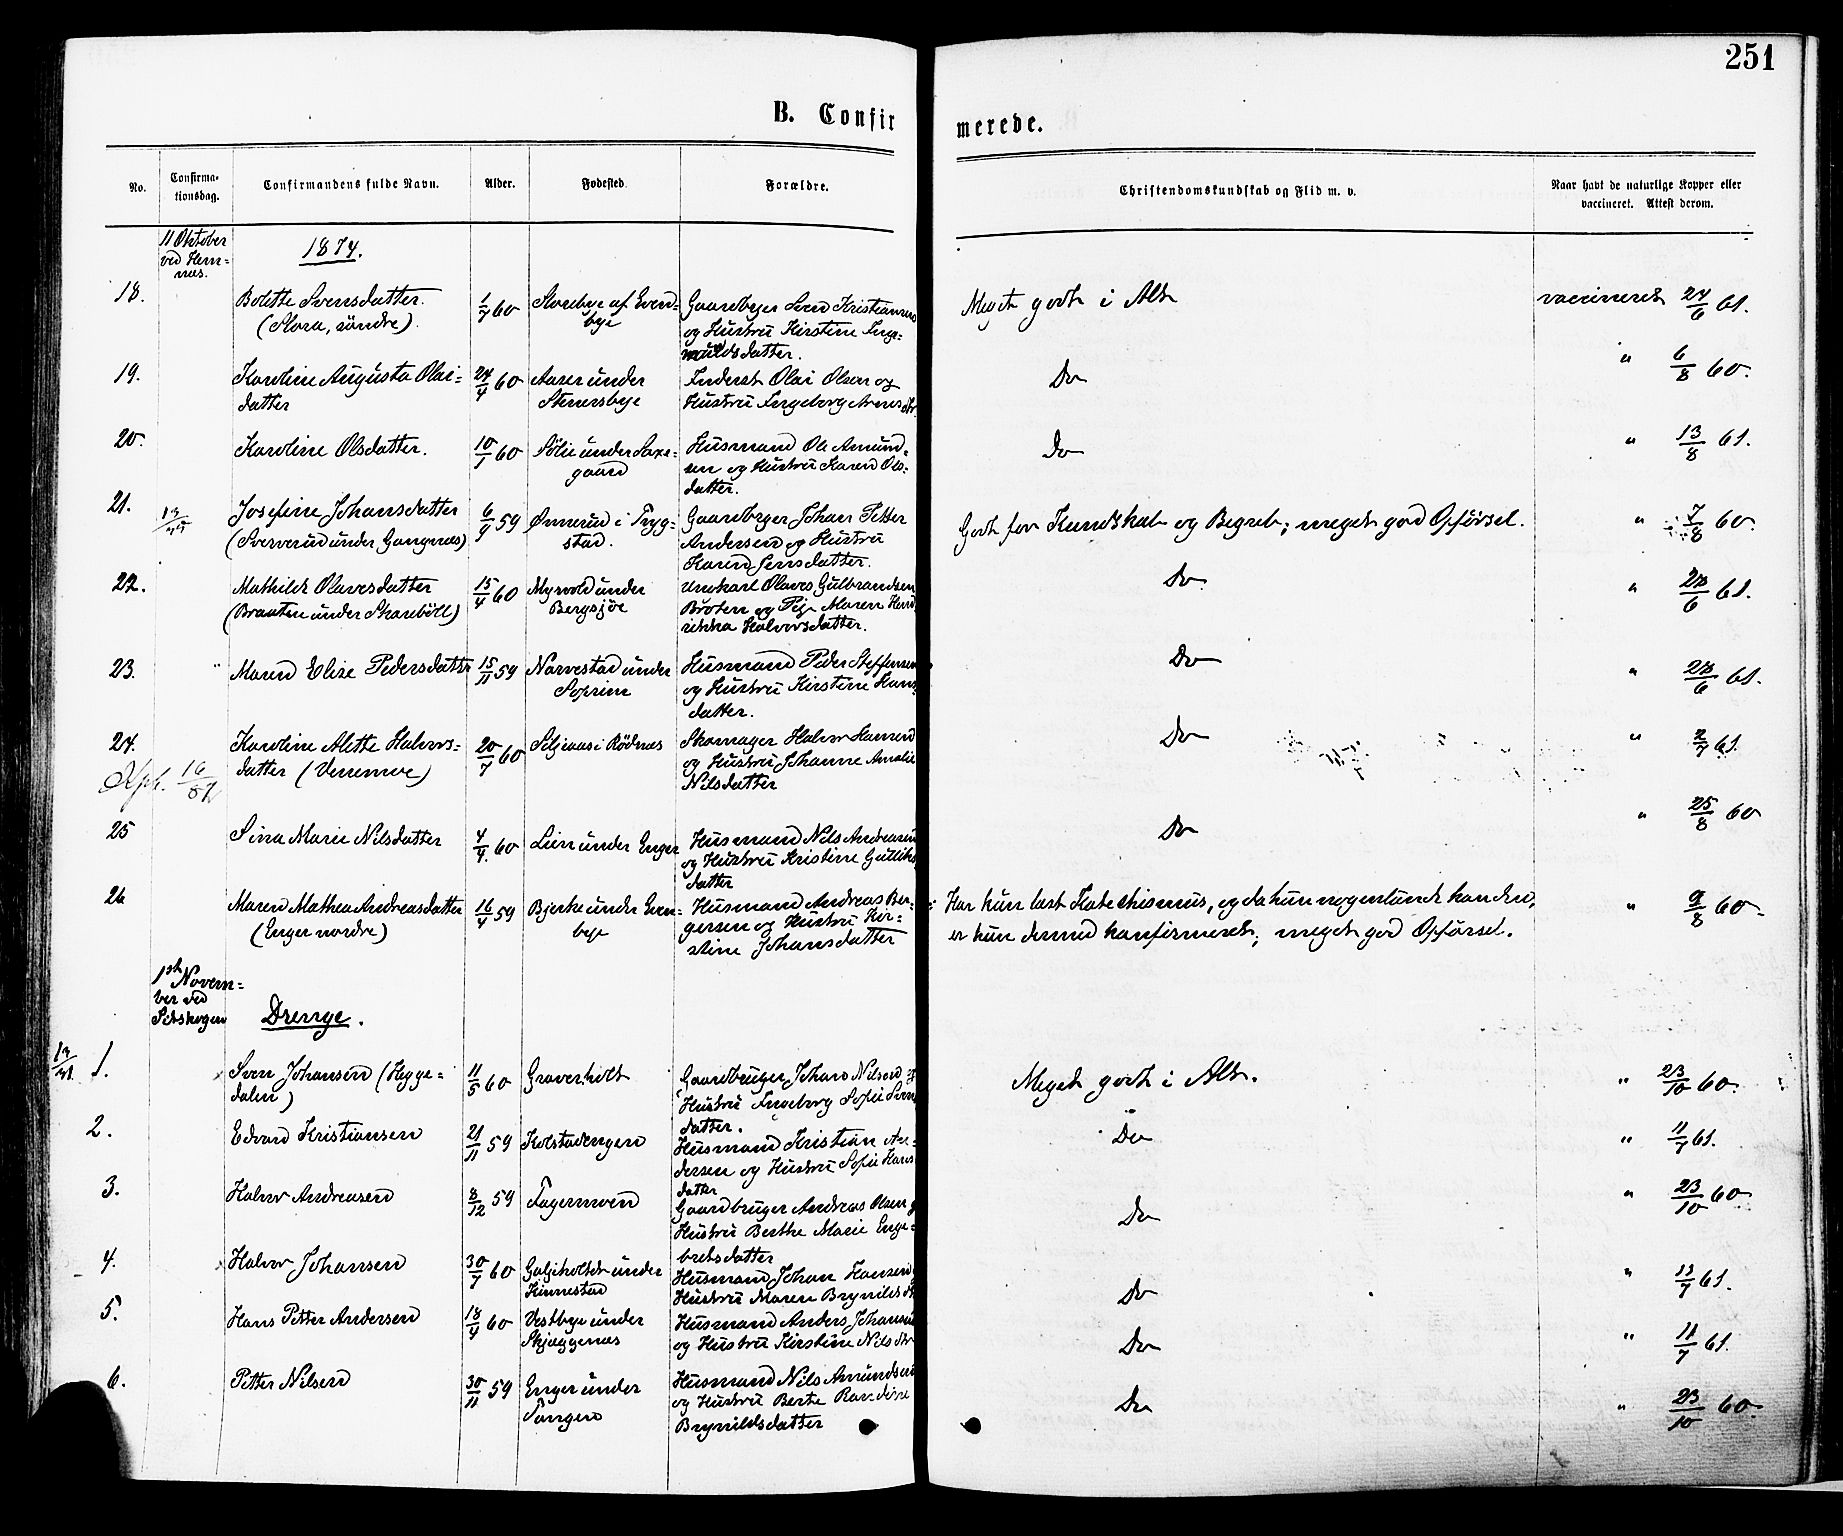 251
B. Confirmerede.
No. Confirmationsdag. Confirmandens fulde Navn. Alder. Fødested. Forældre. Christendomskundskab og Flid m. v. Naar havt de naturlige Kopper eller vaccineret. Attest derom.
11 Oktober
ved Hem=
næs.
1874.
18. Bolette Svensdatter. 1/7 60 Slorebye af Evend= Gaardbryger Svend Kristiansen Meget godt i Alt vaccineret 24/6 61.
(Slora, søndre). bye og Hustru Kirstine Inge=
muldsdatter.
19. Karoline Augusta Olai= 24/4 60 Aaser under Inderst Olai Olsen og Do " 6/8 60.
datter Stenersbye Hustru Ingeborg Arnesdtr.
20. Karoline Olsdatter. 10/1 60 Sølie under Saxe= Husmand Ole Amund= Do " 13/8 61.
gaard sen og Hustru Karen Ols=
datter.
21. Josefine Johansdatter 6/9 59 Ønnerud i Tryg= Gaardbryger Johan Petter Godt for Kundskab og Begreb; meget god Opførsel. " 7/8 60.
(Sververud under Gangnæs) stad. Andersen og Hustru
Karen Jensdatter.
22. Mathilde Olavesdatter 15/4 60 Myrvold under Ungkarl Olaves Gulbrandsen Do. " 6 61.
(Braaten under Skarebøll) Bergsjøe Broten og Pige Maren Hend
rikka Halvorsdatter.
23. " Maren Elise Pedersdatter 15/11 59 Narvestad under Husmand Peder Steffensen Do " 6 61.
Soprim og Hustru Kirstine Hans
datter.
24. Karoline Alette Halvors= 20/7 60 Seljiaas i Rødnæs Skomager Halvor Hansen Do " 2/7 61.
datter (Vennemoe) og Hustru Johanne Amalie
16/87 Nilsdatter
25 Sina Marie Nilsdatter 4/4. 60 Lien under Enger Husmand Nils Andreasen Do " 25/8 60
og Hustru Kristine Gulliks
datter
26 Maren Mathea Andreasdatter 16/4 59 Bjerke under Even= Husmand Andreas Ber= Har kun læst Katechismus, og da hun nogenlunde kan den, " 9/8 60.
(Enger nordre) bye gersen og Hustru Ker= er hun dermed konfirmeret; meget god Opførsel.
stine Johansdatter
1st Novem=
ber ved
Setskogen
Drenge.
1. Sven Johansen (Hegge= 11/5 60 Graverholt Gaardbruger Johan Nilsen og Meget godt i Alt. " 23/10 60.
dalen) Hustru Ingeborg Sofie Svens
datter.
2. Edvard Kristiansen 21/11 59 Kolstadengen Husmand Kristian An= Do " 11/7 61.
dersen og Hustru Sofie Hans
datter
3. Halvor Andreasen 8/12 59 Fagermoen Gaardbruger Andreas Olsen og Do " 23/10 60
Hustru Berthe Marie Enge=
bretsdatter
4. Halvor Johansen 30/7 60 Galjiholtet under Husmand Johan Hansen Do " 11/7 61.
Kinnestad Hustru Maren Brynildsdtr
5. Hans Petter Andersen 18/4 60 Vestbye under Husmand Anders Johansen Do " 11/7 61.
Skjæggenæs og Hustru Kirstine Nilsdtr
6. Petter Nilsen 30/11 59 Enger under Husmand Nils Amundsen Do " 23/10 60.
Tangen og Hustru Berte Randine
Brynildsdatter